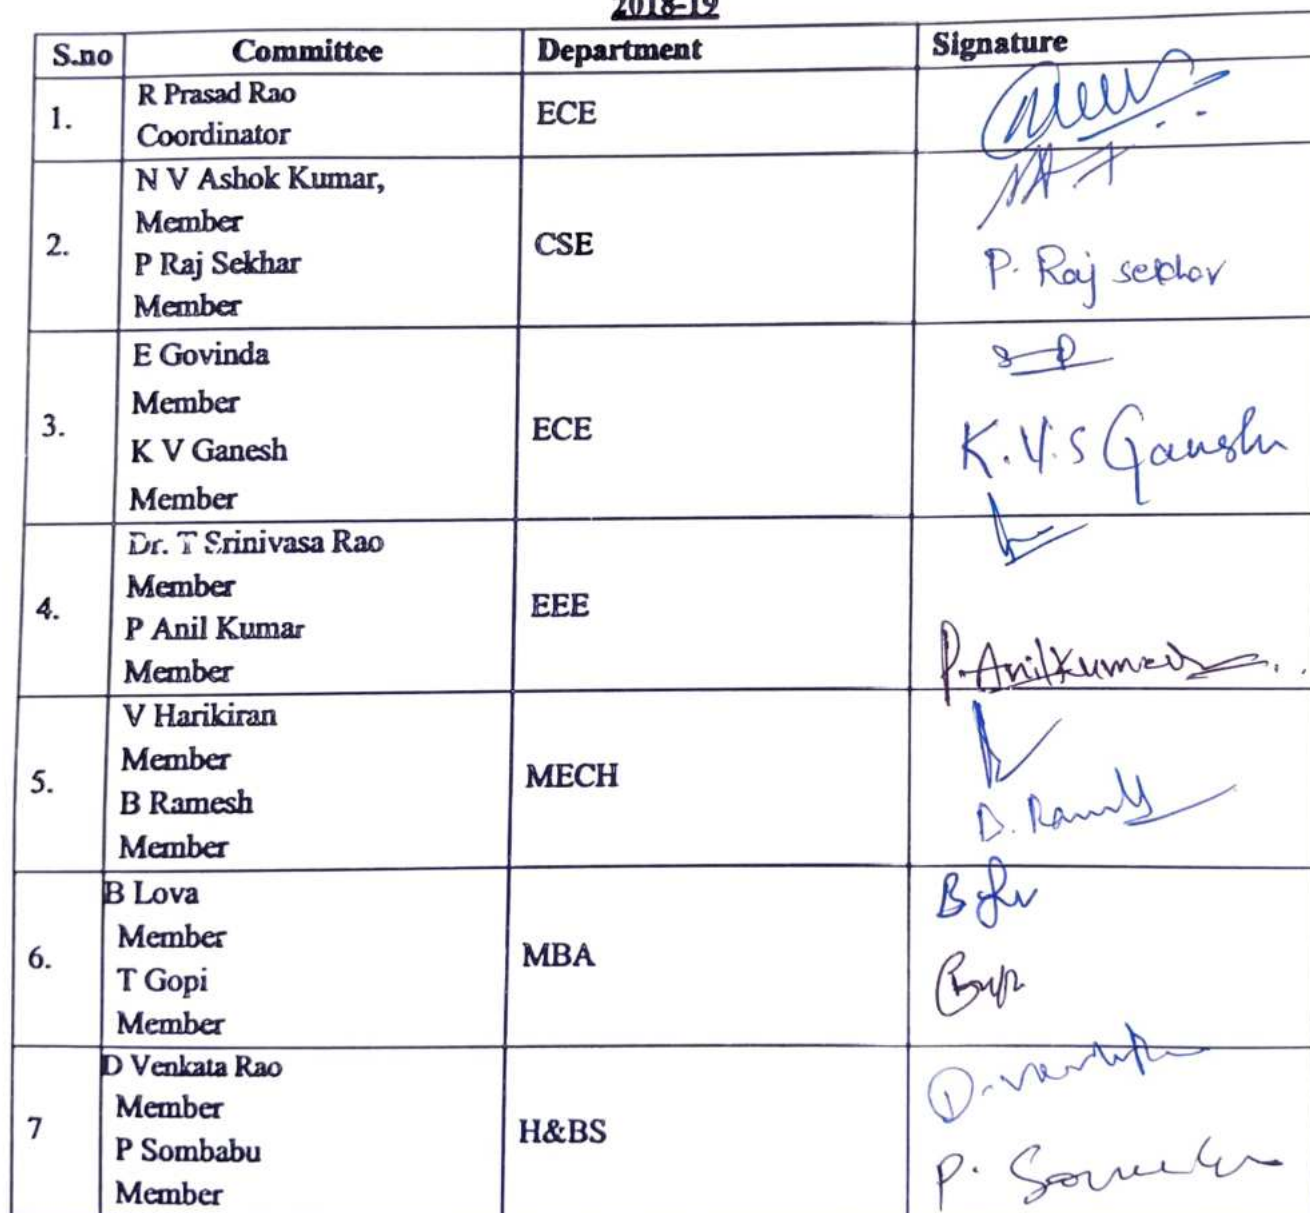 2018-19
S.no Committee Department Signature
1. R Prasad Rao
Coordinator
ECE
2. N V Ashok Kumar,
Member
P Raj Sekhar
Member
CSE
P. Raj sekhar
3. E Govinda
Member
K V Ganesh
Member
ECE
K.V.S Ganesh
4. Dr. T Srinivasa Rao
Member
P Anil Kumar
Member
EEE
P. Anil Kumar
5. V Harikiran
Member
B Ramesh
Member
MECH
6. B Lova
Member
T Gopi
Member
MBA
7 D Venkata Rao
Member
P Sombabu
Member
H&BS